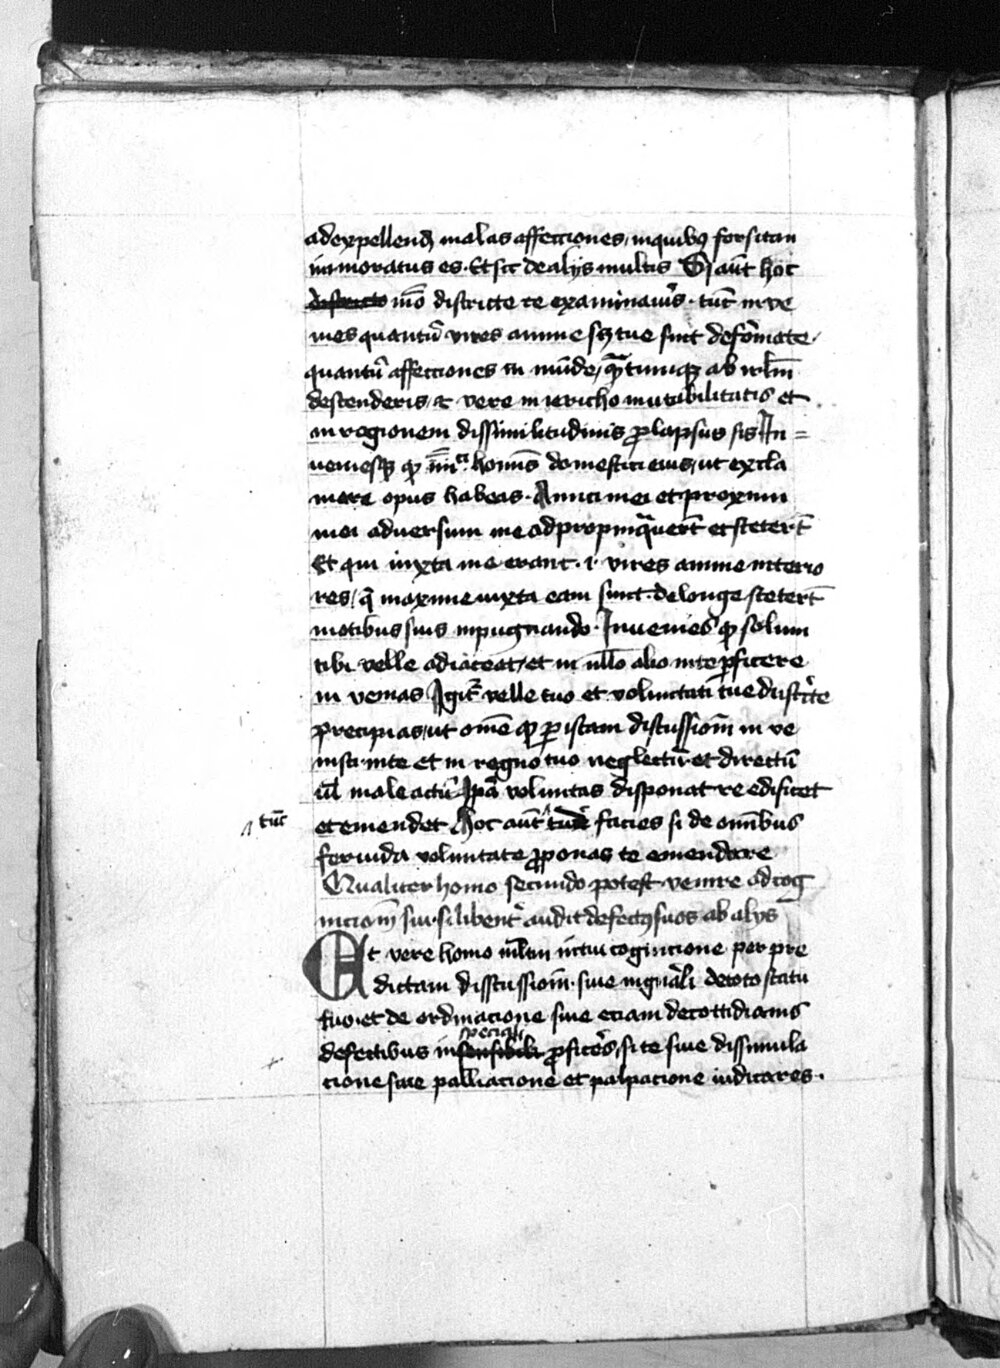 ad expellend malas affectiones, in quibus forsitan
inamoratus es. Et sic de alijs multis Si aut hoc
mo districte te examinaueris. tunc inve
nies quantum vires anime tue sunt deformate.
quantum affectiones in munde, quantumque ab irlm
descenderis, et vere in iericho mutabilitatis et
in regionem dissimilitudinis prolapsus sis In=
ueniesque quod inimici hominis domestici eius, ut excla
mare opus habeas. Amici mei et proximi
mei adversum me adpropinquauerunt et steterunt
Et qui iuxta me erant. i. vires anime interio
res, que maxime iuxta eam sunt. de longe steterunt
motibus suis inpugnando. Invenies quod solum
tibi velle adiaceat, et in nullo alio in te perficere
in venias Igitur velle tuo et voluntati tue districte
precipias, ut omne quod per istam discussionem in ve
nisti in te et in regno tuo neglectum et directum
vel male actum Ipsa voluntas disponat re edificet
tunc
et emendet Hoc aut facies si de omnibus
feruida voluntate proponas te emendare
Qualiter homo secundo potest venire ad cog
nicionem sui. si libenter audit defectus suos ab alijs
Et vere homo multum in tui cognicione per pre
dictam discussionem. siue in generali de toto statu
tuo. et de ordinacione siue eciam de cottidianis
speciali
defectibus in proficeres, si te siue dissimula
cione siue palliacione et palpacione iudicares.